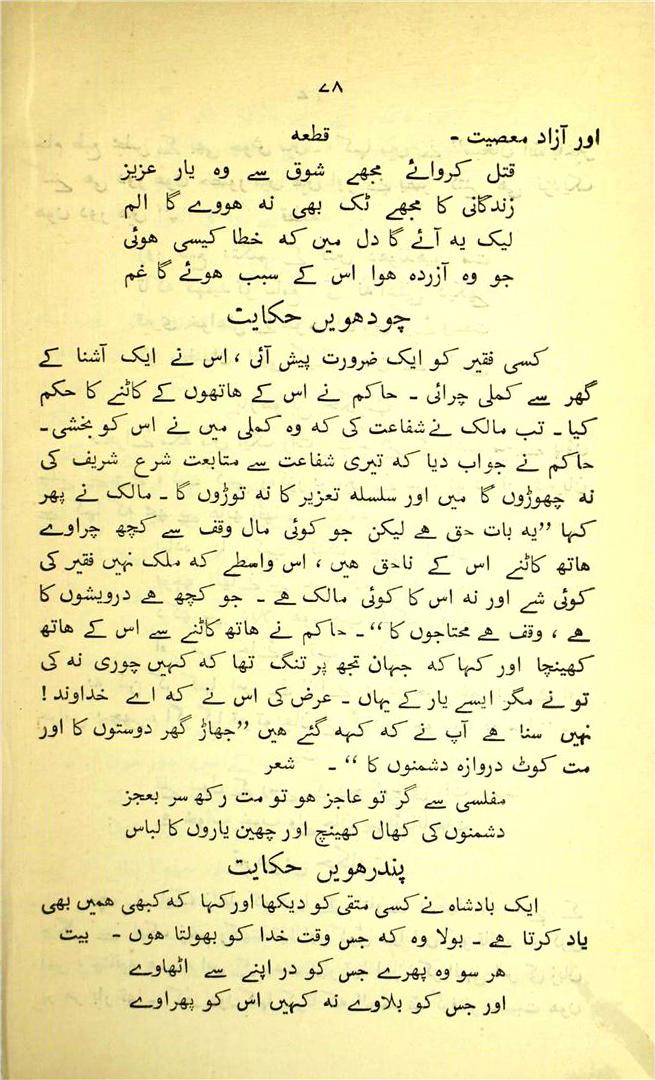 ۷۸
اور آزاد معصیت - قطعه
قتل کروائے مجھے شوق سے وہ یار عزیز
زندگانی کا مجھے ٹک بھی نہ ہووے گا الم
لیک یہ آئے گا دل میں کہ خطا کیسی ہوئی
جو وہ آزردہ ہوا اس کے سبب ہوئے گا غم
چودھویں حکایت
کسی فقیر کو ایک ضرورت پیش آئی ، اس نے ایک آشنا کے
گھر سے کملی چرائی - حاکم نے اس کے ہاتھوں کے کاٹنے کا حکم
کیا - تب مالک نے شفاعت کی کہ وہ کملی میں نے اس کو بخشی -
حاکم نے جواب دیا کہ تیری شفاعت سے متابعت شرع شریف کی
نہ چھوڑوں گا میں اور سلسلہ تعزیر کا نہ توڑوں گا - مالک نے پھر
کہا ”یہ بات حق ہے لیکن جو کوئی مال وقف سے کچھ چراوے
ہاتھ کاٹنے اس کے ناحق ہیں ، اس واسطے کہ ملک نہیں فقیر کی
کوئی شے اور نہ اس کا کوئی مالک ہے - جو کچھ ہے درویشوں کا
ہے ، وقف ہے محتاجوں کا“ - حاکم نے ہاتھ کاٹنے سے اس کے ہاتھ
کھینچا اور کہا کہ جہان تجھ پر تنگ تھا کہ کہیں چوری نہ کی
تو نے مگر ایسے یار کے یہاں - عرض کی اس نے کہ اے خداوند !
نہیں سنا ہے آپ نے کہ کہہ گئے ہیں ”جھاڑ گھر دوستوں کا اور
مت کوٹ دروازہ دشمنوں کا“ - شعر
مفلسی سے گر تو عاجز ہو تو مت رکھ سر بعجز
دشمنوں کی کھال کھینچ اور چھین یاروں کا لباس
پندرھویں حکایت
ایک بادشاہ نے کسی متقی کو دیکھا اور کہا کہ کبھی ہمیں بھی
یاد کرتا ہے - بولا وہ کہ جس وقت خدا کو بھولتا ہوں - بیت
ہر سو وہ پھرے جس کو در اپنے سے اٹھاوے
اور جس کو بلاوے نہ کہیں اس کو پھراوے